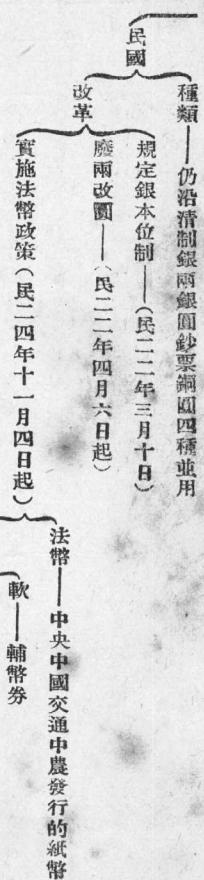 民國
種類——仍沿清制銀兩銀圓鈔票銅圓四種並用
改革
規定銀本位制——(民二二年三月十日)
廢兩改圓——(民二二年四月六日起)
實施法幣政策(民二四年十一月四日起)
法幣——中央中國交通中農發行的紙幣
軟——輔幣券